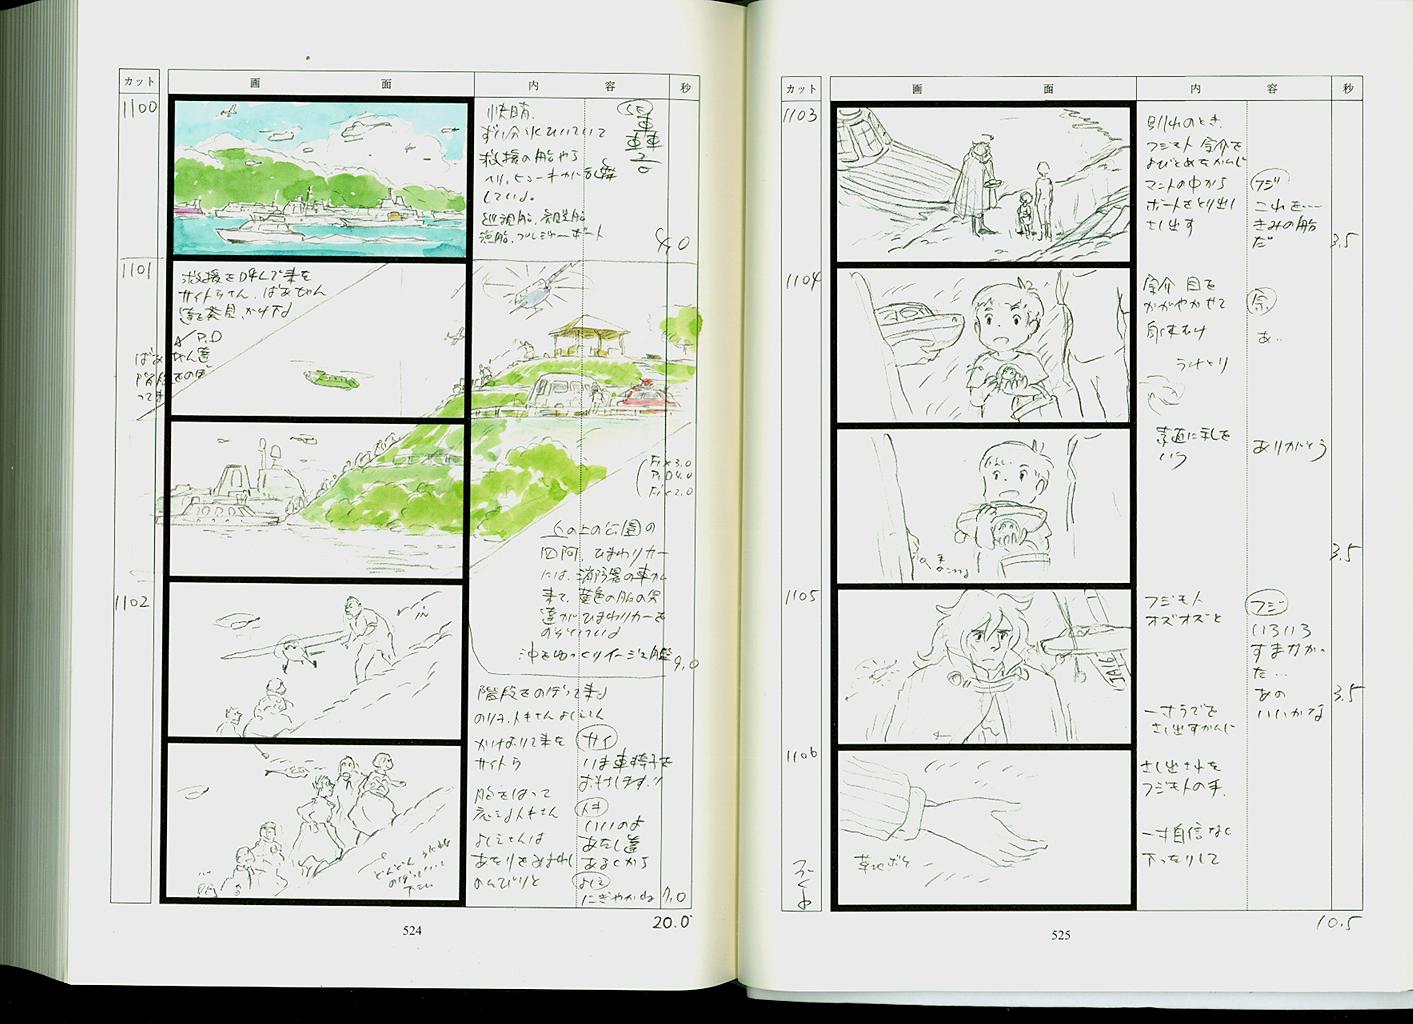 カット 画 面 内 容 秒
1100
快晴.
ずい分水ひいていて
救援の船やら
ヘリ、ヒコーキが乱舞
している。
巡視船、
漁船、プレジャーボート
SE
轟
4.0
1101
救援を呼んで来た
サイトウさん、ばあちゃん
達を発見、かけ下る
P.D
ばあちゃん達
階段をのぼ
って来
Fix 3.0
P.D 4.0
Fix 2.0
丘の上の公園の
四阿、ひまわりカー
には、消防署の車が
来て、黄色の服の男
達がひまわりカーを
のぞいている
沖をゆっくりイージス艦
9.0
1102
in
階段をのぼって来る
のり子、トキさん よしえさん
かけおりて来た
サイトウ
胸をはって
応えるトキさん
よしえさんは
あたりを見まわし
のんびりと
サイ
いま車椅子を
おもちします!!
トキ
いいのよ
あたし達
あるくから
よしえ
にぎやかね
7.0
どんどん
のぼって
下さい
20.0
524
カット 画 面 内 容 秒
1103
別れのとき、
フジモト 宗介を
よびとめるかんじ
マントの中から
ボートをとり出し
さし出す
フジ
これを……
きみの船
だ
3.5
1104
宗介 目を
かがやかせて
うけとり
宗
あ..
素直に礼を
いう
ありがとう
3.5
1105
フジモト
オズオズと
一寸うでを
さし出すかんじ
フジ
いろいろ
すまなかっ
た…
あの
いいかな
3.5
1106
さし出された
フジモトの手、
一寸自信なく
下ったりして
草地ボケ
10.5
525